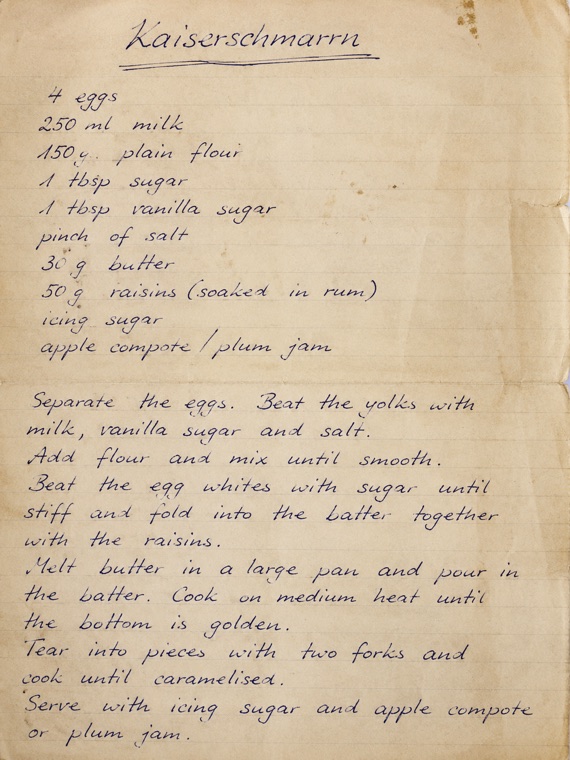 Kaiserschmarrn
4 eggs
250 ml milk
150g. plain flour
1 tbsp sugar
1 tbsp vanilla sugar
pinch of salt
30 g butter
50 g raisins (soaked in rum)
icing sugar
apple compote / plum jam
Separate the eggs. Beat the yolks with
milk, vanilla sugar and salt.
Add flour and mix until smooth.
Beat the egg whites with sugar until
stiff and fold into the batter together
with the raisins.
Melt butter in a large pan and pour in
the batter. Cook on medium heat until
the bottom is golden.
Tear into pieces with two forks and
cook until caramelised.
Serve with icing sugar and apple compote
or plum jam.